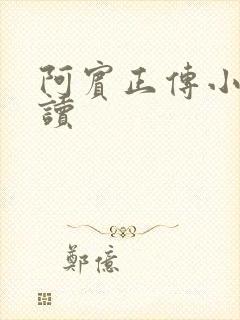 阿賓正傳小
讀
鄭億